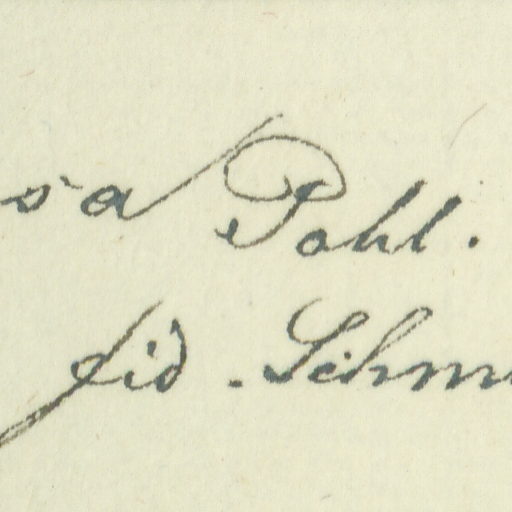 sa Pohl.
fid. Schm